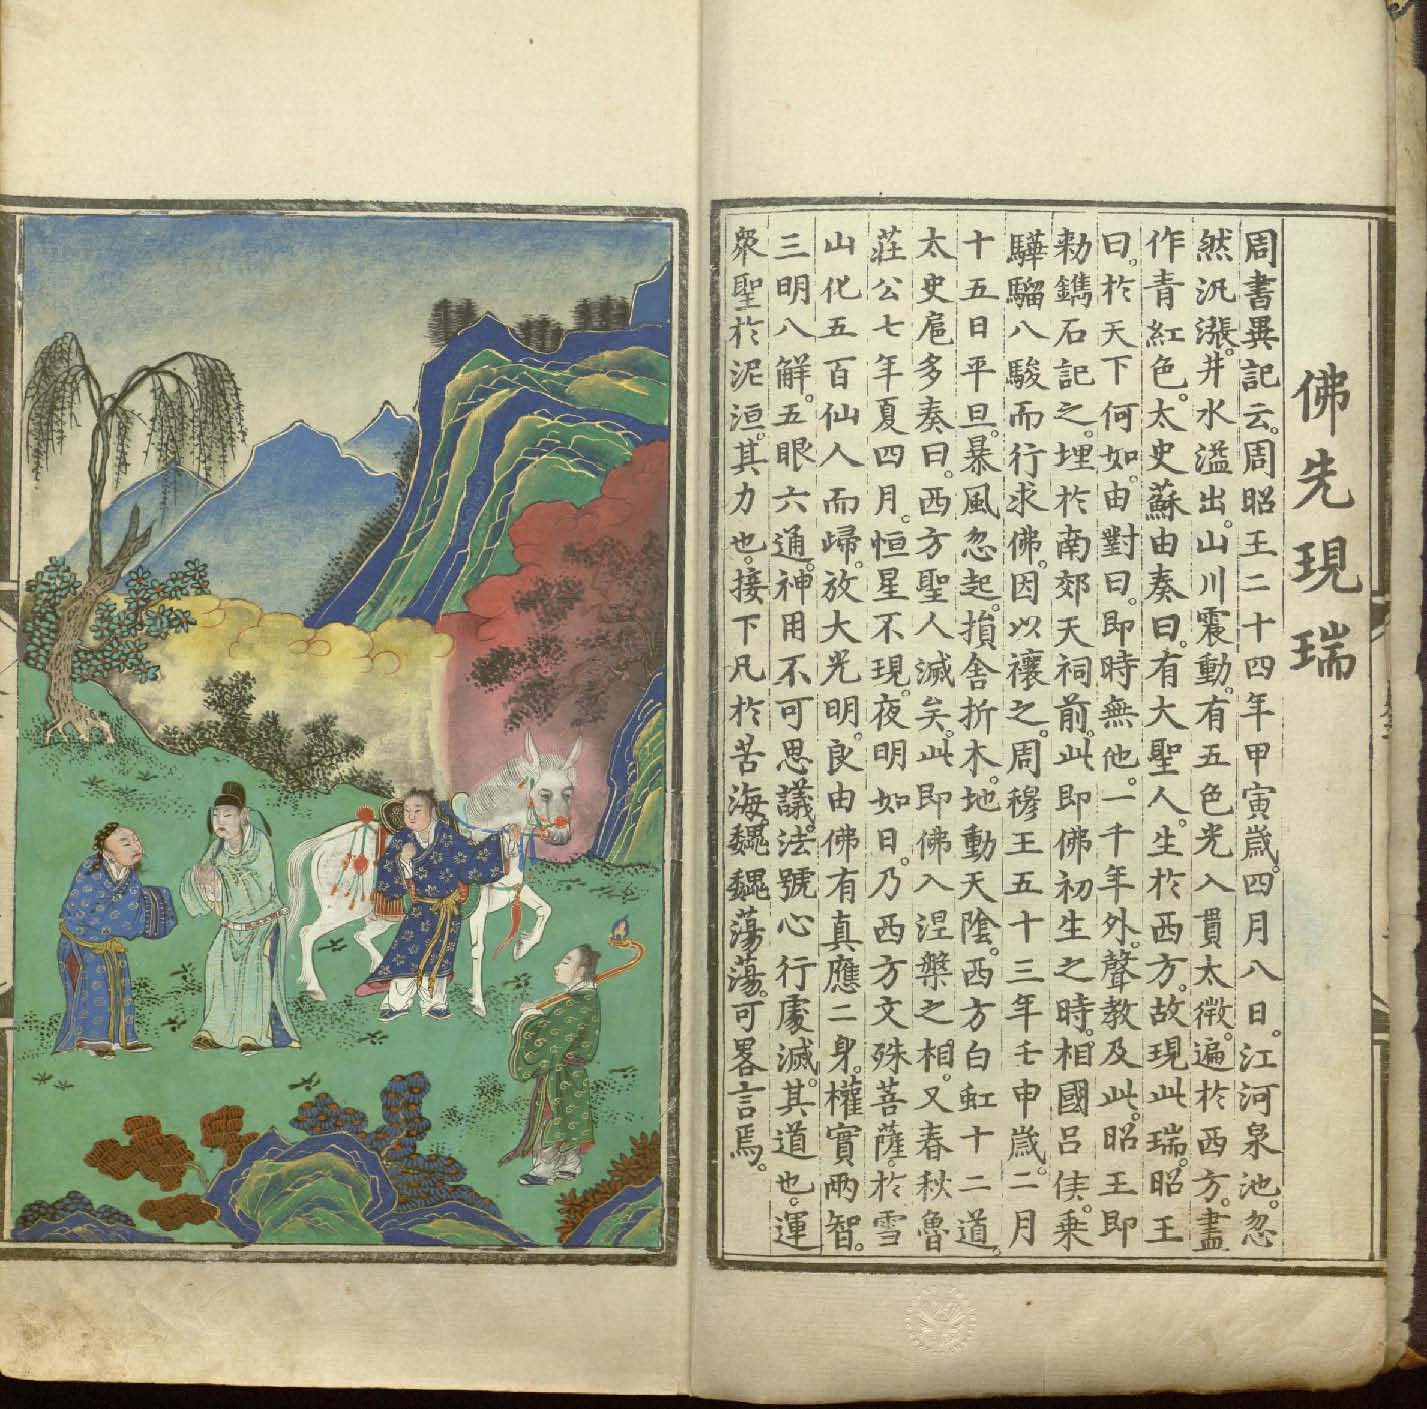 佛先現瑞
周書異記云。周昭王二十四年甲寅歲。四月八日。江河泉池。忽
然汎漲。井水溢出。山川震動。有五色光入貫太微。遍於西方。盡
作青紅色。太史蘇由奏曰。有大聖人。生於西方。故現此瑞。昭王
曰。於天下何如。由對曰。即時無他。一千年外。聲教及此。昭王即
勅鐫石記之。埋於南郊天祠前。此即佛初生之時。相國呂侯。乗
驊騮八駿而行求佛。因以禳之。周穆王五十三年壬申歲。二月
十五日平旦。暴風忽起。損舍折木。地動天陰。西方白虹十二道。
太史扈多奏曰。西方聖人滅矣。此即佛入涅槃之相。又春秋魯
莊公七年夏四月。恒星不現。夜明如日。乃西方文殊菩薩。於雪
山化五百仙人而歸。放大光明。良由佛有真應二身。權實兩智。
三明八解。五眼六通。神用不可思議。法號心行處滅。其道也。運
衆聖於泥洹。其力也。接下凡於苦海。巍巍蕩蕩。可畧言焉。